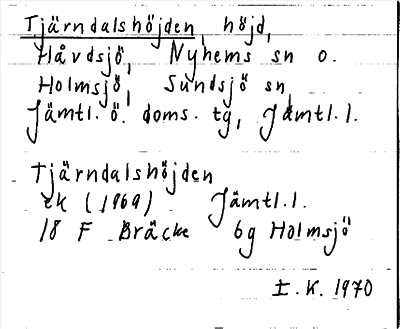 Tjärndalshöjden, höjd,
Håvdsjö, Nyhems sn o.
Holmsjö, Sundsjö sn,
Jämtl. ö. doms. tg, Jämtl. l.
Tjärndalshöjden
ek (1969) Jämtl. l.
18 F Bräcke 6g Holmsjö
I. K. 1970